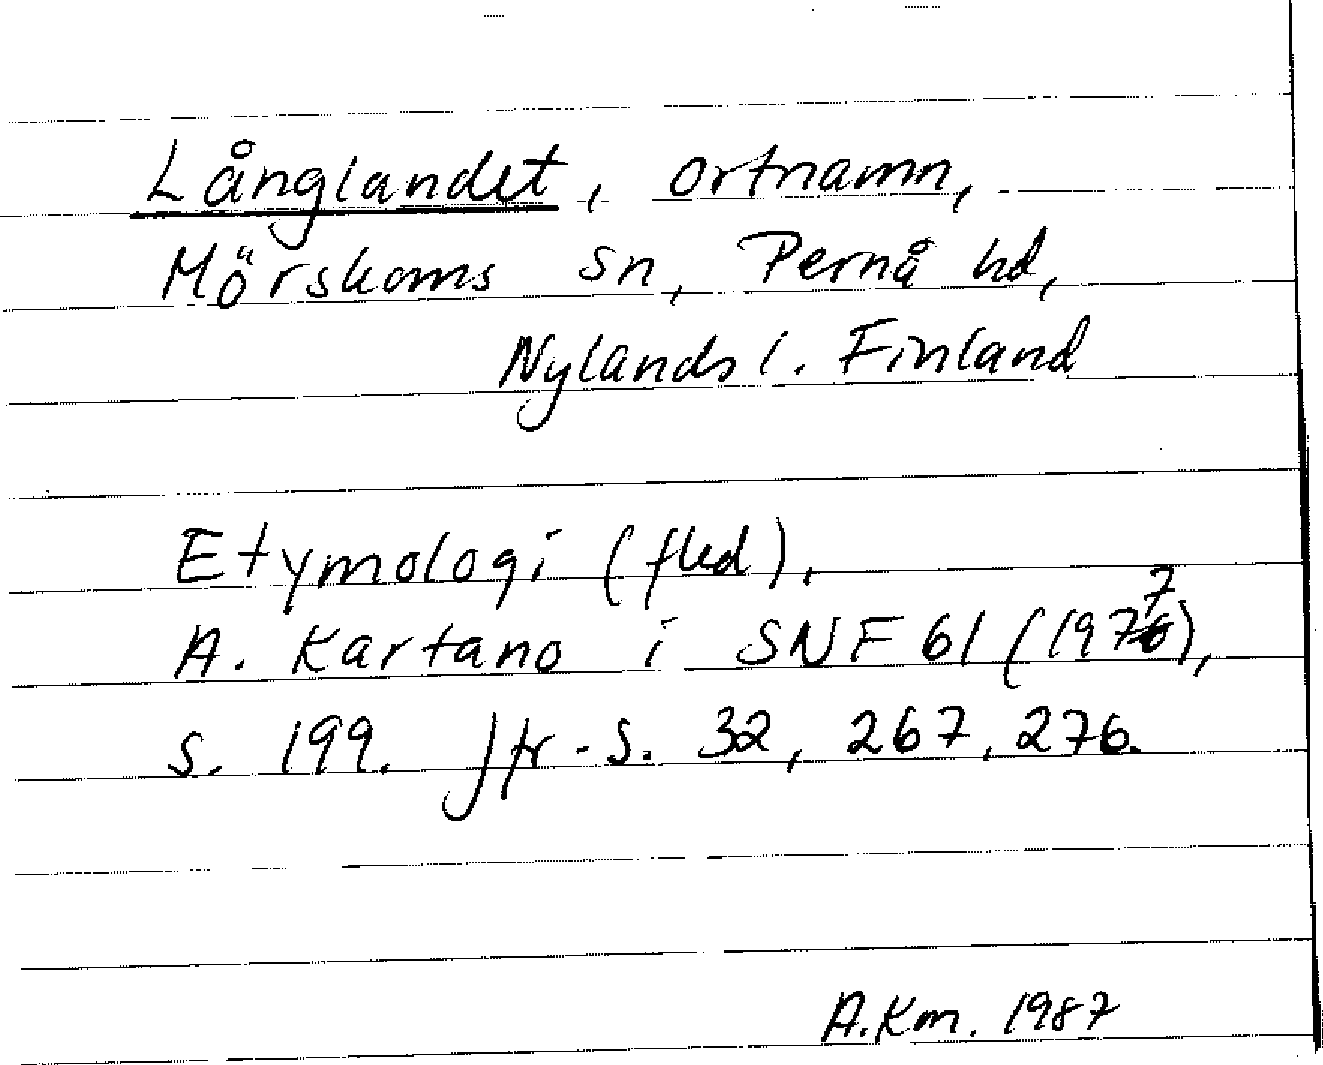 Långlandet, ortnamn,
Mörskoms sn, Pernå hd,
Nylands l. Finland
Etymologi (fled),
A. Kartano i SNF 61 (1977),
s. 199. Jfr. s. 32, 267, 276.
A.Km. 1987